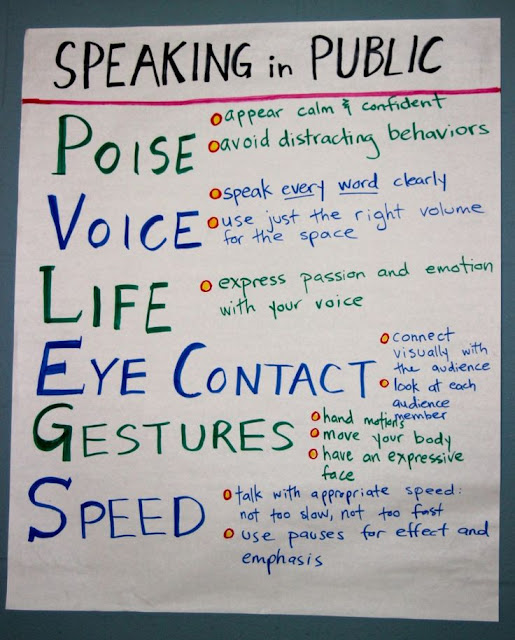 SPEAKING in PUBLIC
POISE
appear calm & confident
avoid distracting behaviors
VOICE
speak every word clearly
use just the right volume
for the space
LIFE
express passion and emotion
with your voice
EYE CONTACT
connect
visually with
the audience
look at each
audience
member
GESTURES
hand motions
move your body
have an expressive
face
SPEED
talk with appropriate speed:
not too slow, not too fast
use pauses for effect and
emphasis